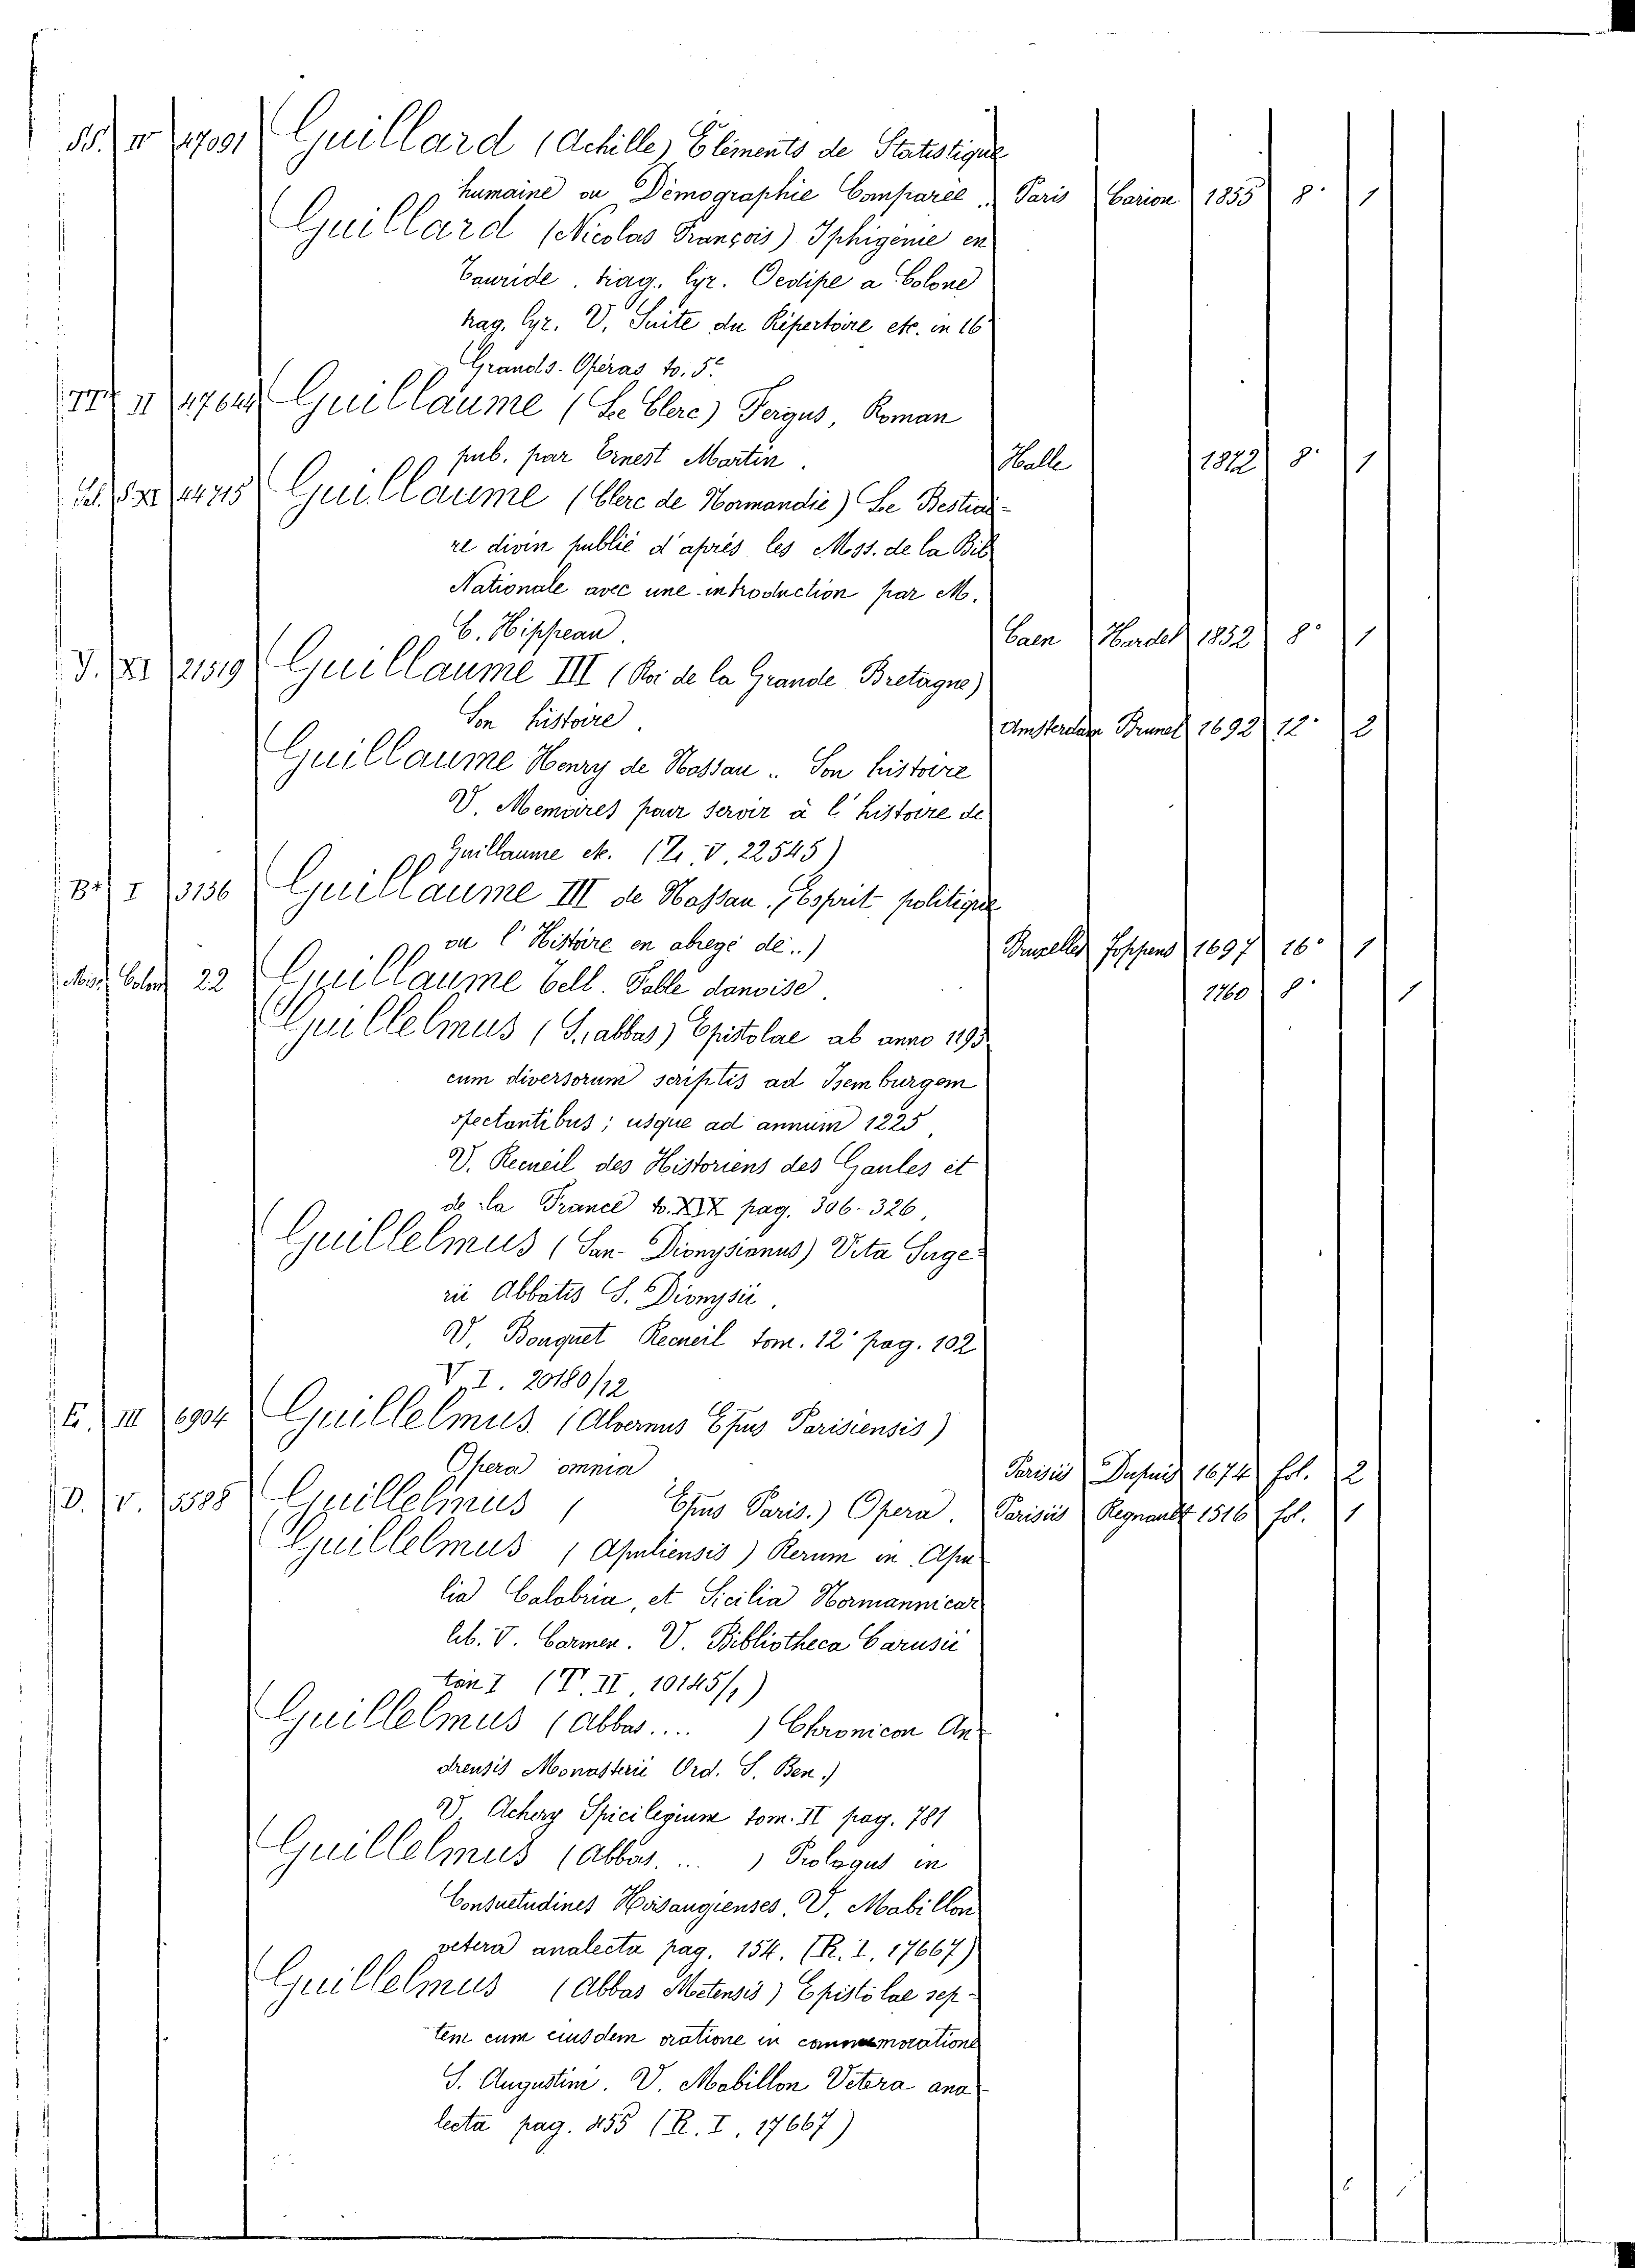 SS. IV 47091 Guillard (Achille) Eléments de Statistique
humaine ou Démographie Comparée. Paris Carion 1855 8° 1
Guillard (Nicolas François) Iphigénie en
Tauride. trag. lyr. Oedipe a Colone
trag. lyr. V. Suite du Répertoire etc. in 16
Grands-Opéras to. 5°
II 47644 Guillaume (Le Clerc) Fergus, Roman
pub. par Ernest Martin. Halle 1872 8° 1
44715 Guillaume (Clerc de Normandie) Le Bestiai-
re divin publié d'après les Mss. de la Bib
Nationale avec une introduction par M.
C. Hippeau. Caen Hardel 1852 8° 1
J. XI 21519 Guillaume III (Roi de la Grande Bretagne)
Son histoire. Amsterdam Brunel 1692 12° 2
Guillaume Henry de Nassau.. Son histoire
V. Memoires pour servir à l'histoire de
Guillaume etc. (Z. V. 22545)
B* I 3136 Guillaume III de Nassau. (Esprit politique
ou l'Histoire en abregé de..) Bruxelles Foppens 1697 16° 1
Misc. Colon 22 Guillaume Tell. Fable danoise. 1760 8° 1
Guillelmus (S. abbas) Epistolae ab anno 1193
cum diversorum scriptis ad Isemburgem
spectantibus; usque ad annum 1225
V. Recueil des Historiens des Gaules et
de la France t. XIX pag. 306-326,
Guillelmus (San-Dionysianus) Vita Suge
rii Abbatis S. Dionysii.
V. Bouquet Recueil tom. 12° pag. 102
V. I. 20180/12
E. III 6904 Guillelmus. (Alvernus Epus Parisiensis)
Opera omnia Parisiis Dupuis 1674 fol. 2
D. V. 5588 Guillelmus ( Epus Paris.) Opera. Parisiis Regnault 1516 fol. 1
Guillelmus (Apuliensis) Rerum in Apu
lia Calabria, et Sicilia Normannicar
lib. V. Carmen. V. Bibliotheca Carusii
tom I (T. II. 10145/1)
Guillelmus (Abbas.... ) Chronicon An
drensis Monasterii Ord. S. Ben.)
V. Achery Spicilegium tom. II pag. 781
Guillelmus (Abbas. ... ) Prologus in
Consuetudines Hirsaugienses. V. Mabillon
vetera analecta pag. 154. (R. I. 17667)
Guillelmus (Abbas Metensis) Epistolae sep-
tem cum eiusdem oratione in commemoratione
S. Augustini. V. Mabillon Vetera ana
lecta pag. 455 (R. I. 17667)